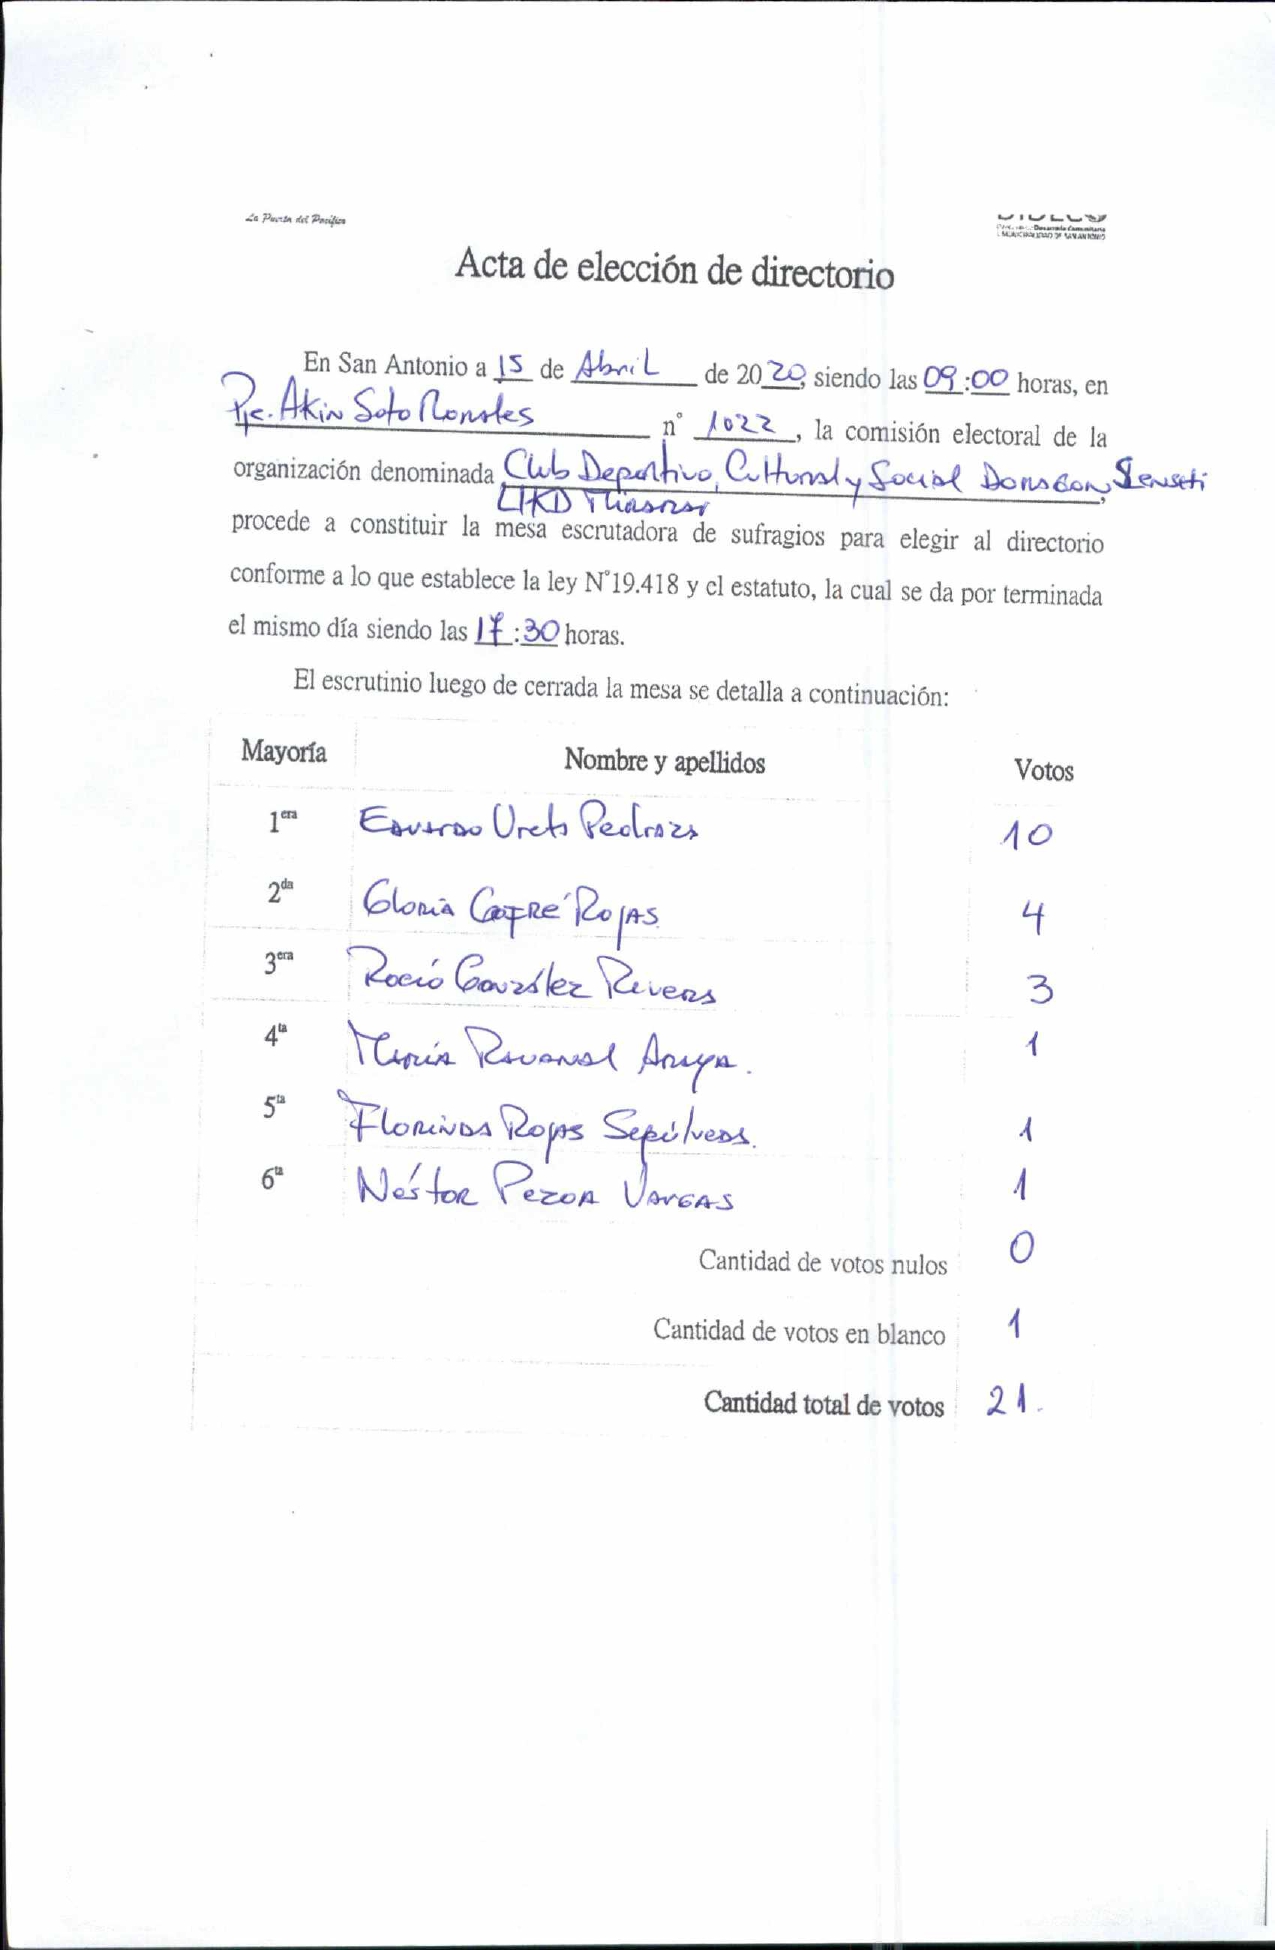 La Puerta del Pacífico
Desarrollo Comunitario
I. MUNICIPALIDAD DE SAN ANTONIO
Acta de elección de directorio
En San Antonio a 15 de Abril de 2020, siendo las 09:00 horas, en
Pje. Akin Soto Morales n° 1022, la comisión electoral de la
organización denominada Club Deportivo, Cultural y Social Donsbon
procede a constituir la mesa escrutadora de sufragios para elegir al directorio
conforme a lo que establece la ley N°19.418 y el estatuto, la cual se da por terminada
el mismo día siendo las 17:30 horas.
El escrutinio luego de cerrada la mesa se detalla a continuación:
Mayoría Nombre y apellidos Votos
1era Eduardo Ureta Pedraza 10
2da Gloria Cofré Rojas 4
3era Rocío González Rivera 3
4ta María Ravanal Araya. 1
5ta Florinda Rojas Sepúlveda. 1
6ta Néstor Pezoa Vargas 1
Cantidad de votos nulos 0
Cantidad de votos en blanco 1
Cantidad total de votos 21.